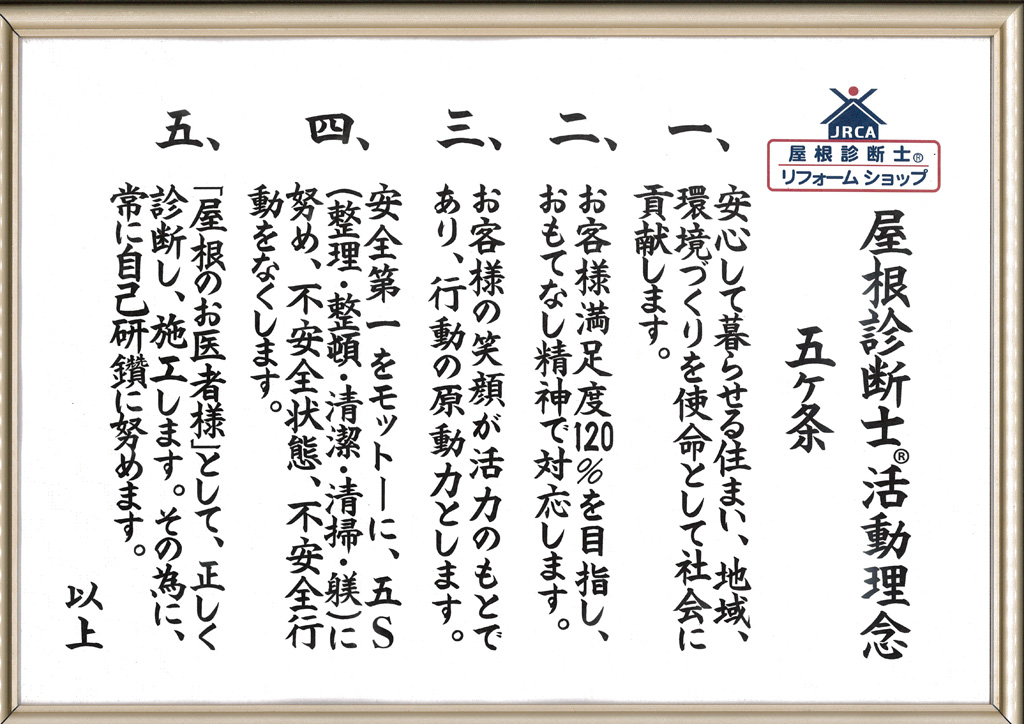 JRCA
屋根診断士®
リフォームショップ
屋根診断士®活動理念
五ケ条
一、
安心して暮らせる住まい、地域、
環境づくりを使命として社会に
貢献します。
二、
お客様満足度120%を目指し、
おもてなし精神で対応します。
三、
お客様の笑顔が活力のもとで
あり、行動の原動力とします。
四、
安全第一をモットーに、五S
(整理・整頓・清潔・清掃・躾)に
努め、不安全状態、不安全行
動をなくします。
五、
「屋根のお医者様」として、正しく
診断し、施工します。その為に、
常に自己研鑽に努めます。
以上